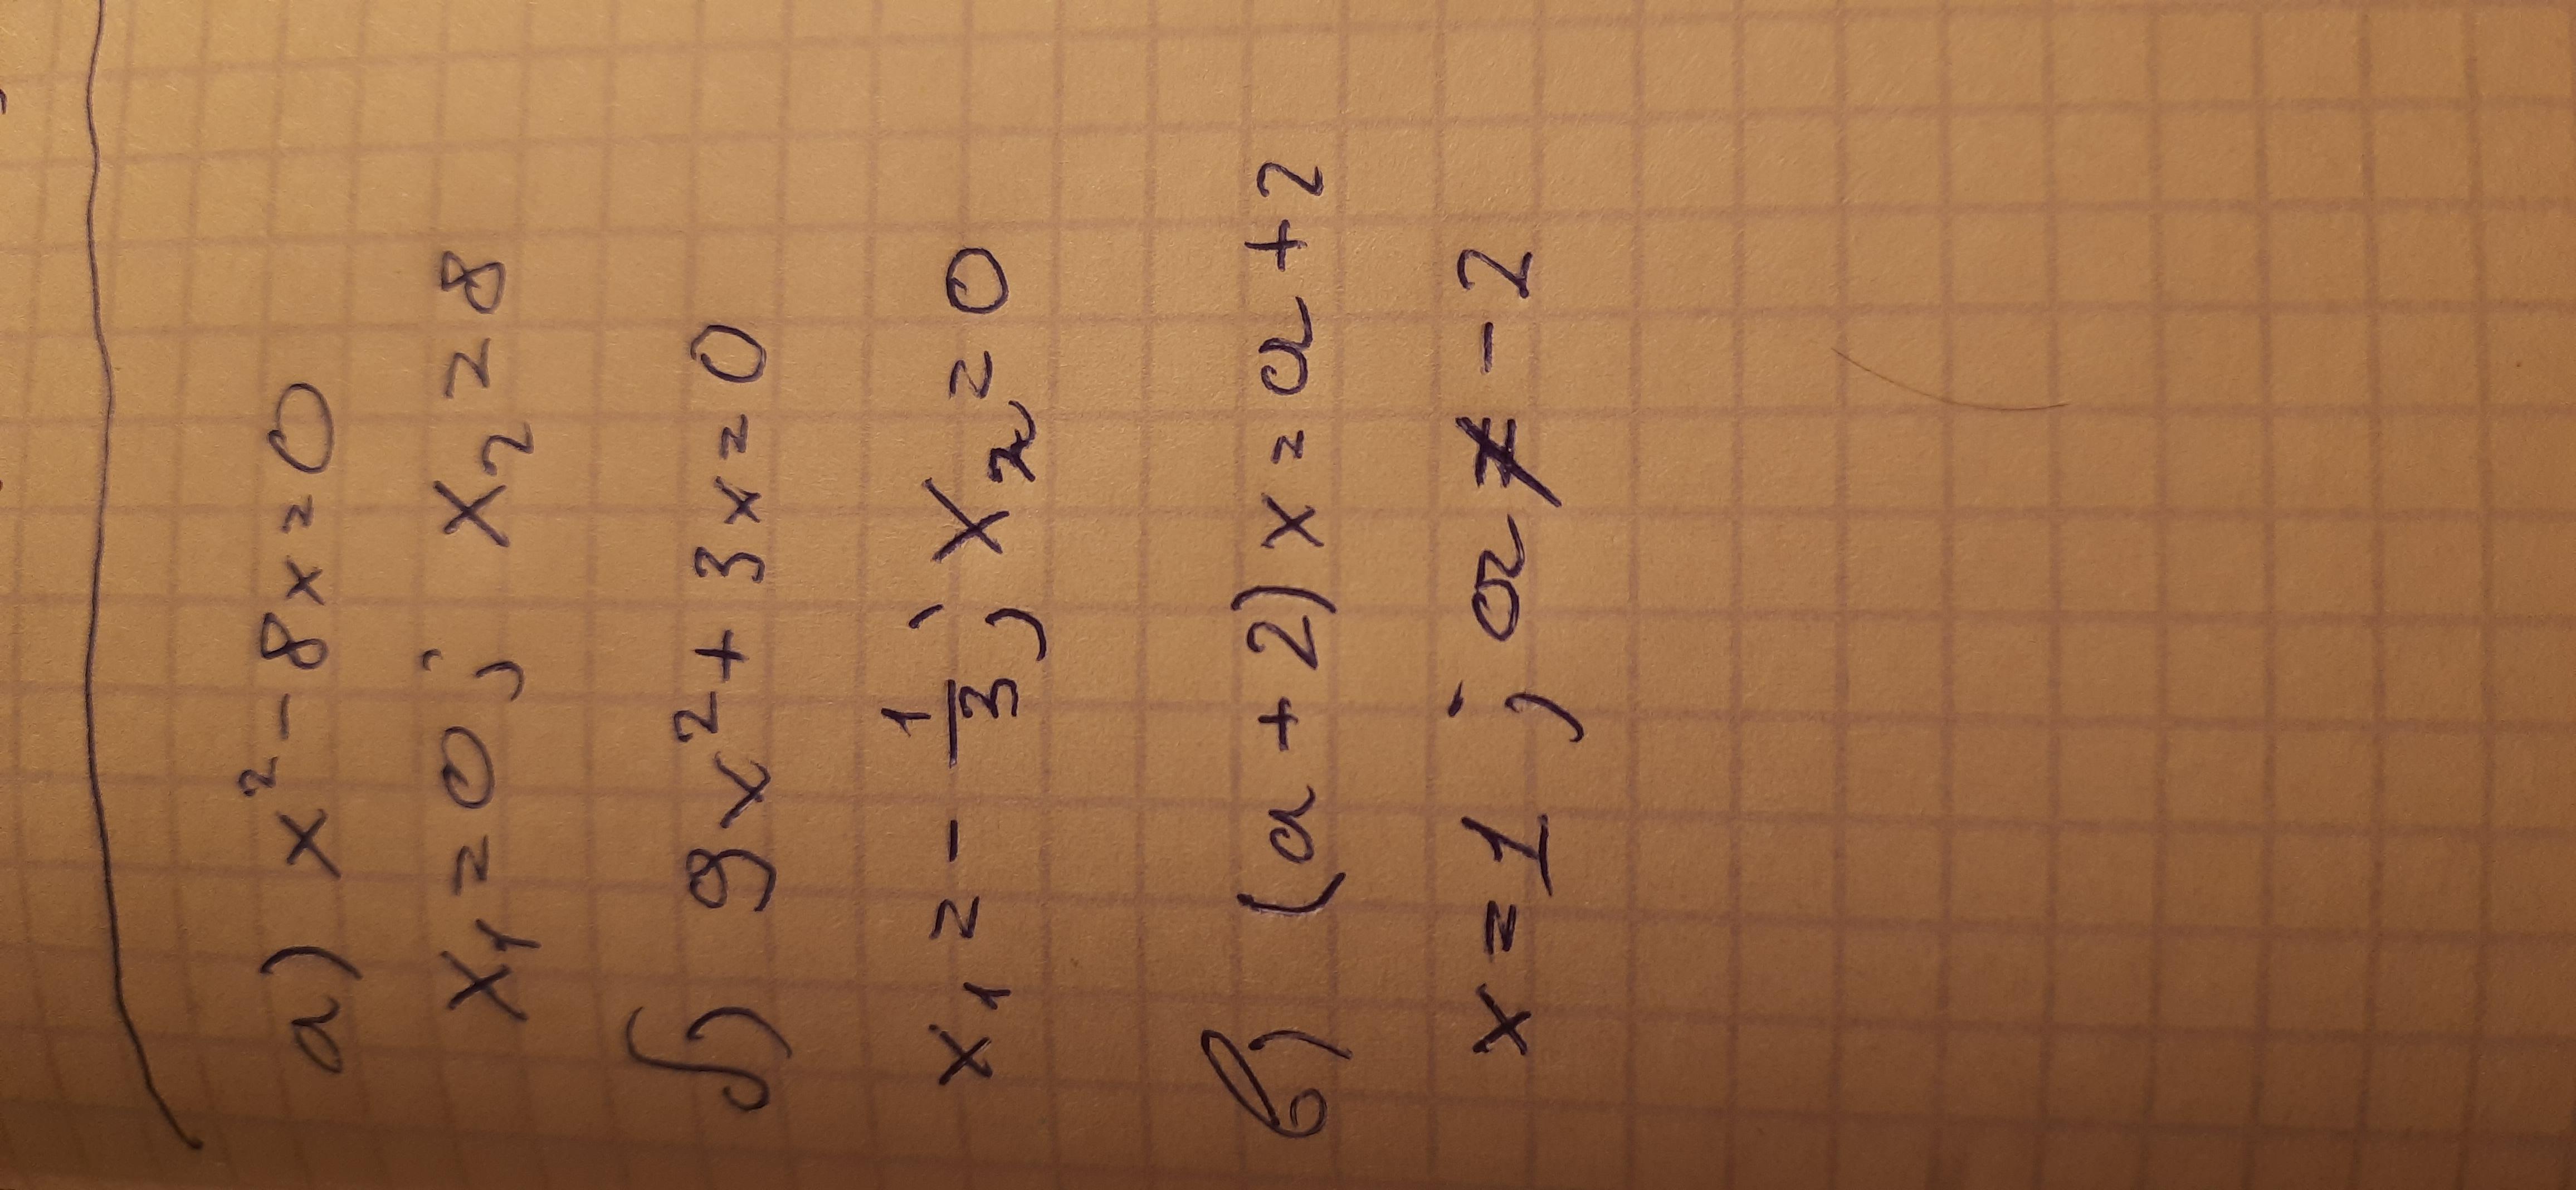 а) x² - 8x = 0
x₁ = 0; x₂ = 8
б) 9x² + 3x = 0
x₁ = - 1/3; x₂ = 0
в) (a + 2)x = a + 2
x = 1; a ≠ - 2